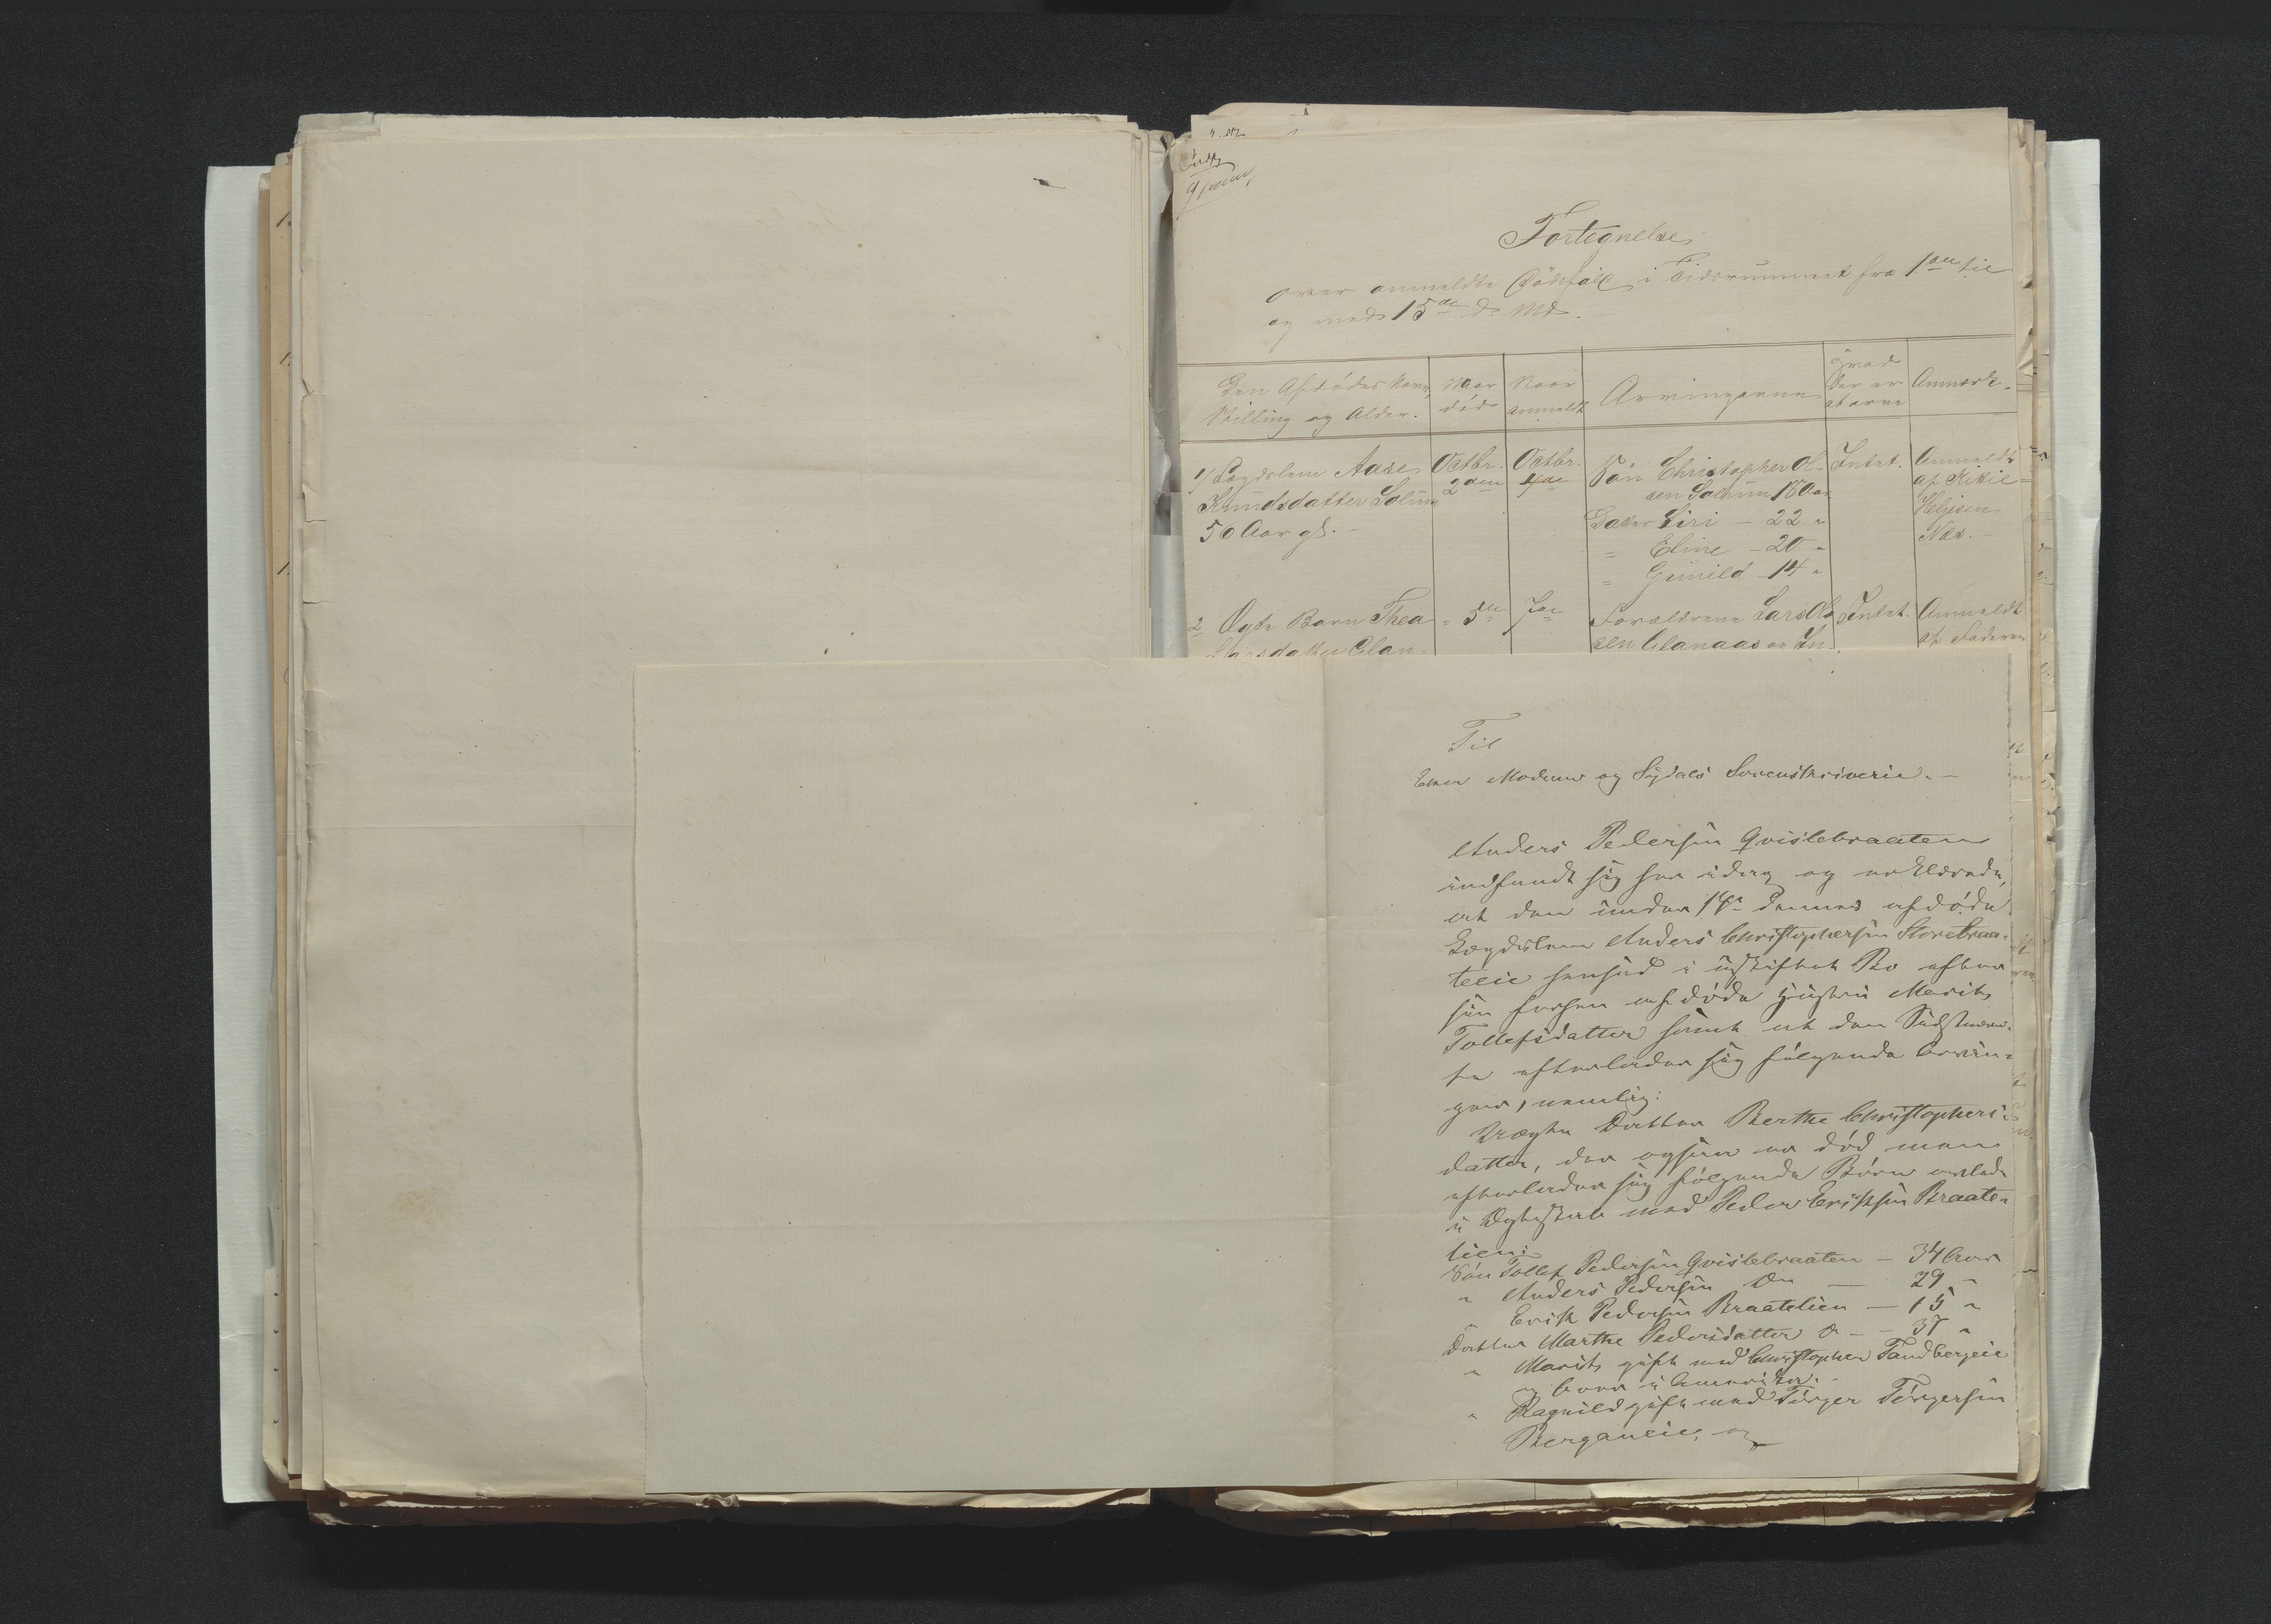 Fortegnelse
over anmeldte Dødsfald i Tidsrummet fra 1ste til
og med 15de d. Md.
Den Afdødes Navn, Stilling og Alder.
Naar død
Naar anmeldt
Arvingerne
Hvad der er at arve
Anmærk-
1/ Lægdslem Aase
Knudsdatter Solum
50 Aar gl.
Octbr.
2den
Octbr.
4de
Søn Christopher Ol-
sen Solum 18 Aar
Datter Siri - 22 "
" Eline - 20 "
" Gunild - 14 "
Intet.
Anmeldt
af Kittil
Helgesen
Næs.
2 Ægte Barn Thea
Larsdatter
" 5te
7de
Forældrene Lars Ol-
sen
Intet.
Anmeldt
af Faderen
Til
Eker Modum og Sigdals Sorenskriverie.
Anders Pedersen Qvislebraaten
indfandt sig her idag og erklærede,
at den under 14de dennes afdøde
Lægdslem Anders Christophersen Storebraa-
teeie hensad i uskiftet Bo efter
sin forhen afdøde Hustru Marit
Tollefsdatter samt at den Sidstnævn-
te efterlader sig følgende Arvin-
ger, nemlig:
Uægte Datter Berthe Christophers-
datter, der ogsaa er død men
efterlader sig følgende Børn avlede
i Ægteskab med Peder Eriksen Braate-
lien:
Søn Tollef Pedersen Qvislebraaten - 34 Aar
" Anders Pedersen Do - 29 "
" Erik Pedersen Braatelien - 15 "
Datter Marthe Pedersdatter do - 37 "
" Marit gift med Christopher Tandbergeie
og boer i Amerika.
" Ragnild gift med Torger Torgersen
Berganeie, og